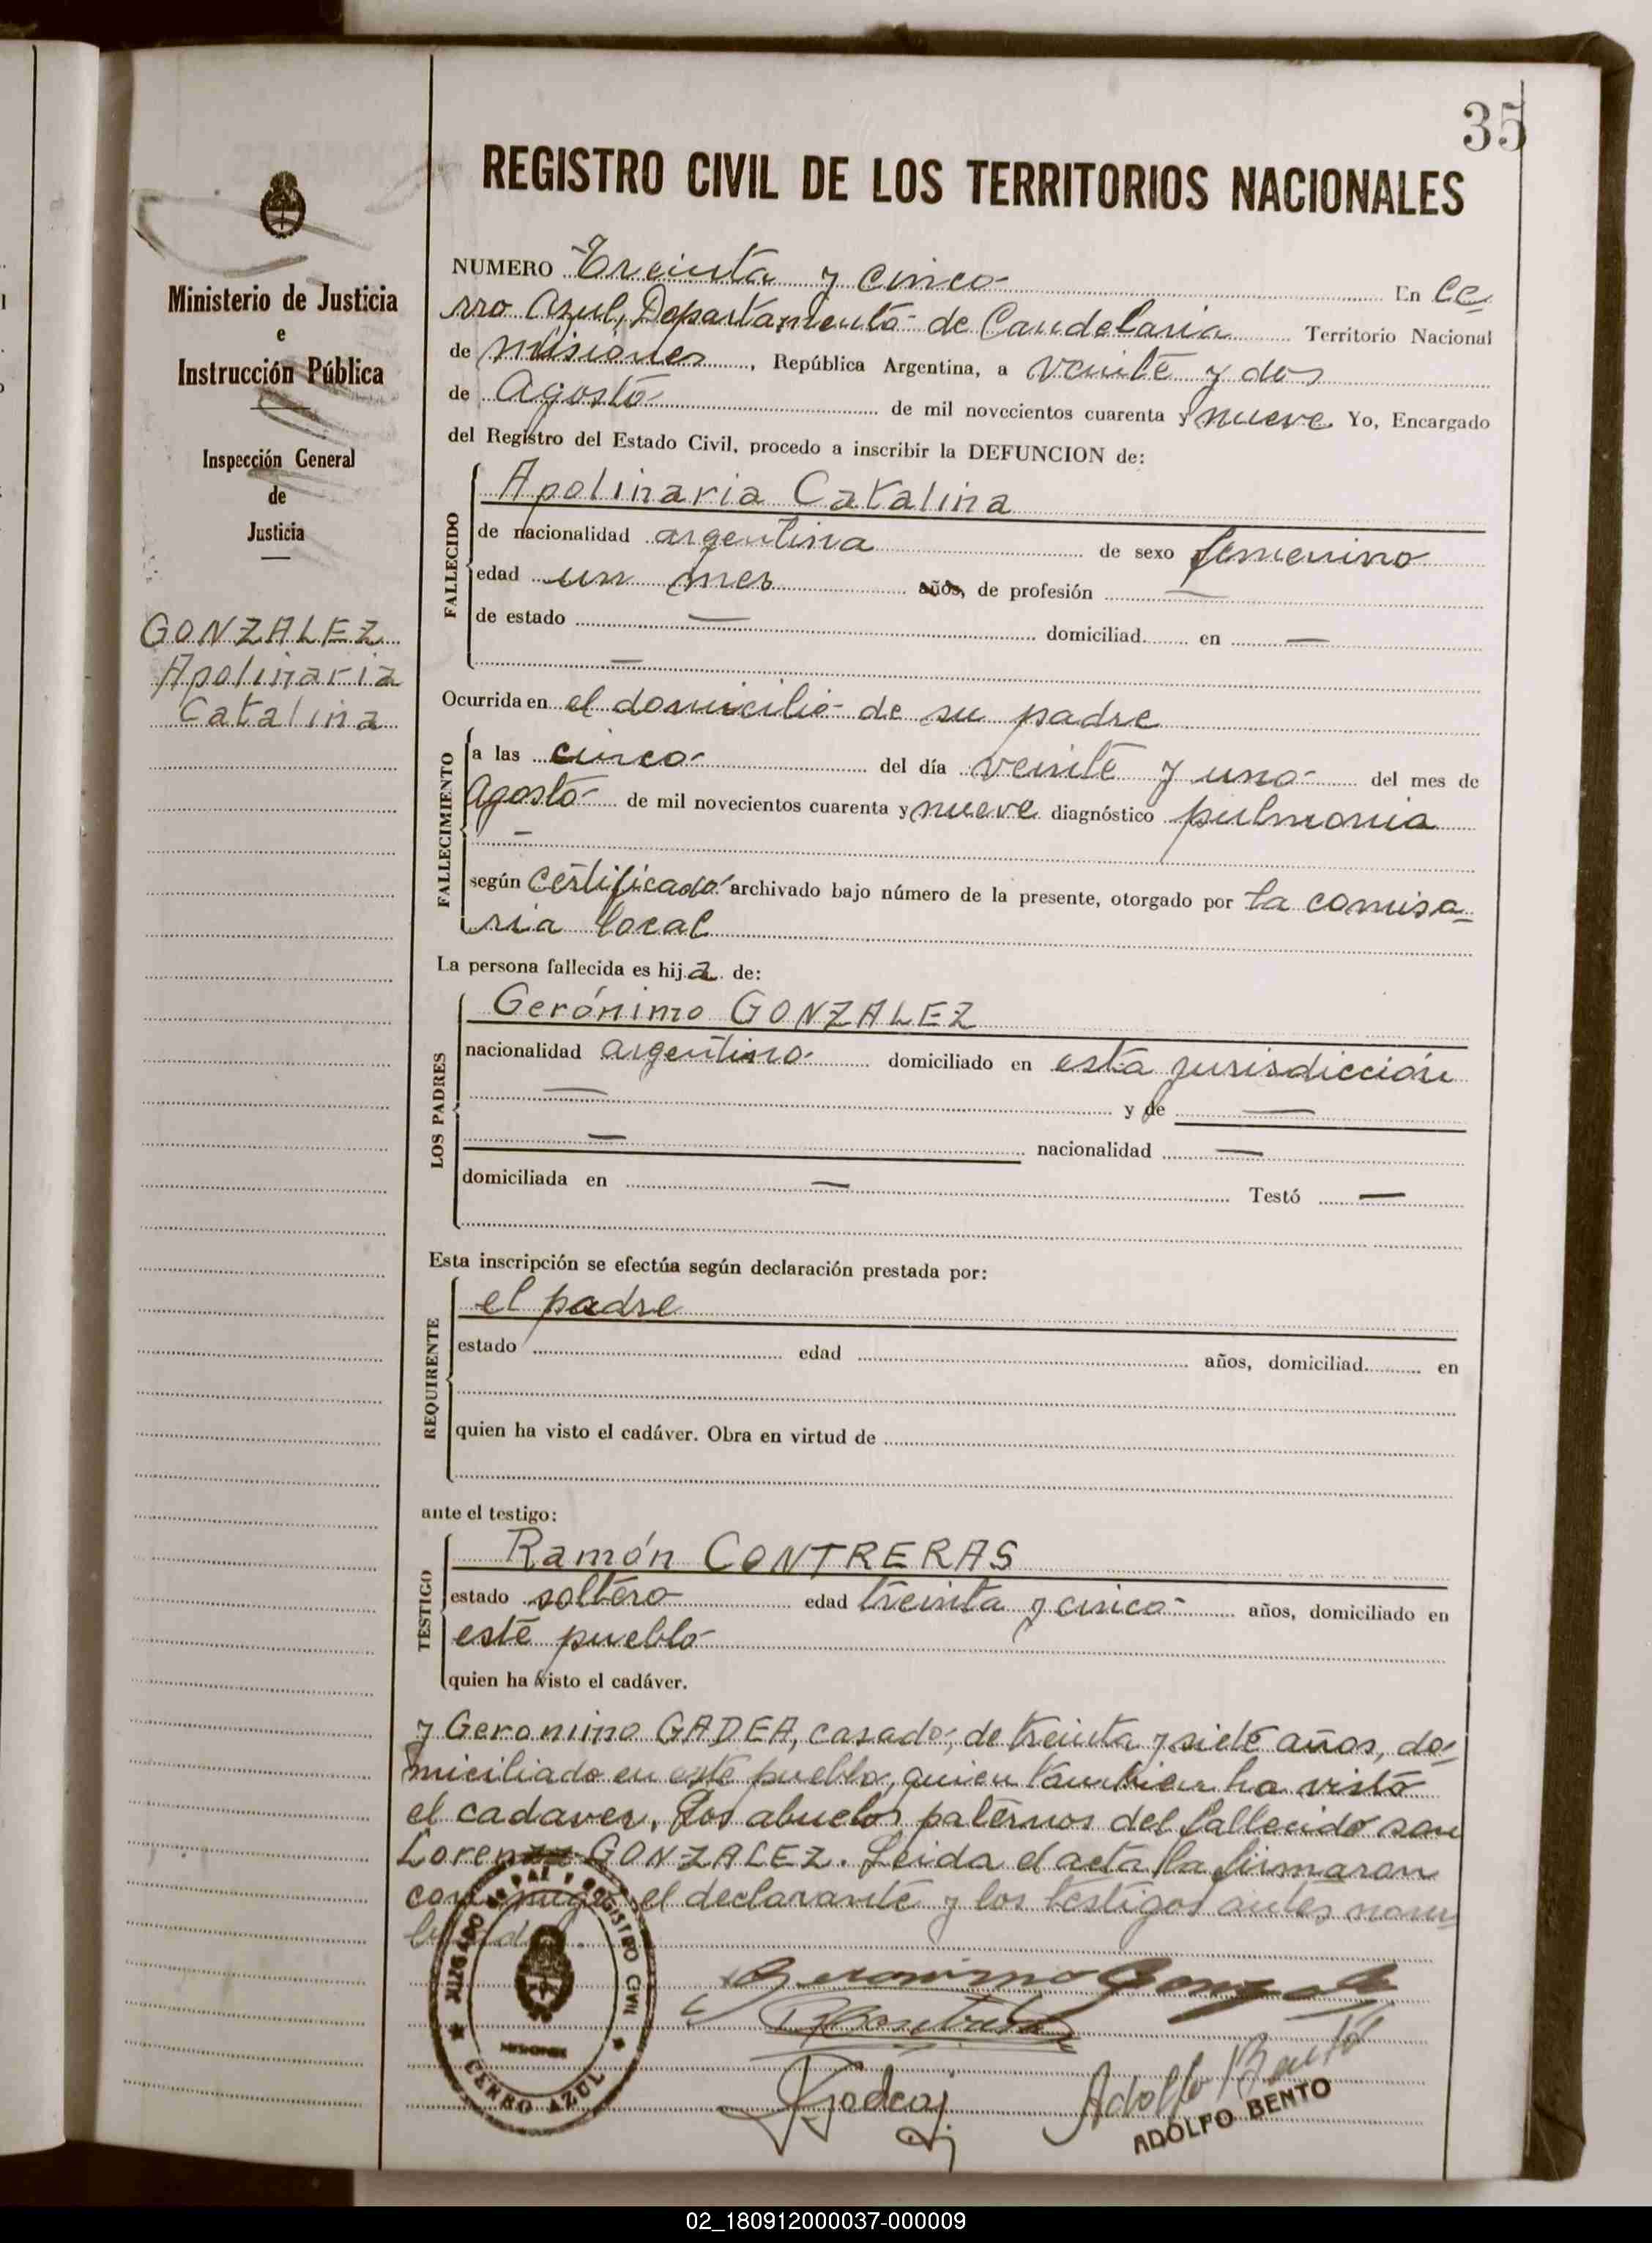 35
REGISTRO CIVIL DE LOS TERRITORIOS NACIONALES
Ministerio de Justicia
e
Instrucción Pública
Inspección General
de
Justicia
GONZALEZ
Apolinaria
Catalina
NUMERO Treinta y cinco En Ce
rro Azul, Departamento de Candelaria Territorio Nacional
de Misiones, República Argentina, a veinte y dos
de Agosto de mil novecientos cuarenta y nueve Yo, Encargado
del Registro del Estado Civil, procedo a inscribir la DEFUNCION de:
FALLECIDO
Apolinaria Catalina
de nacionalidad argentina de sexo femenino
edad un mes años, de profesión —
de estado — domiciliad en —
—
Ocurrida en el domicilio de su padre
FALLECIMIENTO
a las cinco del día veinte y uno del mes de
Agosto de mil novecientos cuarenta y nueve diagnóstico pulmonia
—
según certificado archivado bajo número de la presente, otorgado por la comisa
ria local
La persona fallecida es hija de:
LOS PADRES
Gerónimo GONZALEZ
nacionalidad argentino domiciliado en esta jurisdicción
— y de —
— nacionalidad —
domiciliada en — Testó —
Esta inscripción se efectúa según declaración prestada por:
REQUIRENTE
el padre
estado edad años, domiciliad en
quien ha visto el cadáver. Obra en virtud de
ante el testigo:
TESTIGO
Ramón CONTRERAS
estado soltero edad treinta y cinco años, domiciliado en
este pueblo
quien ha visto el cadáver.
y Geronimo GADEA, casado, de treinta y siete años, do
miciliado en este pueblo, quien tambien ha visto
el cadaver. Los abuelos paternos del fallecido son
GONZALEZ. Leida el acta la firmaron
el declarante y los testigos antes nom
Geronimo Gonzalez
Adolfo Bento
ADOLFO BENTO
JUZGADO DE PAZ Y REGISTRO CIVIL
MISIONES
CERRO AZUL
02_180912000037-000009